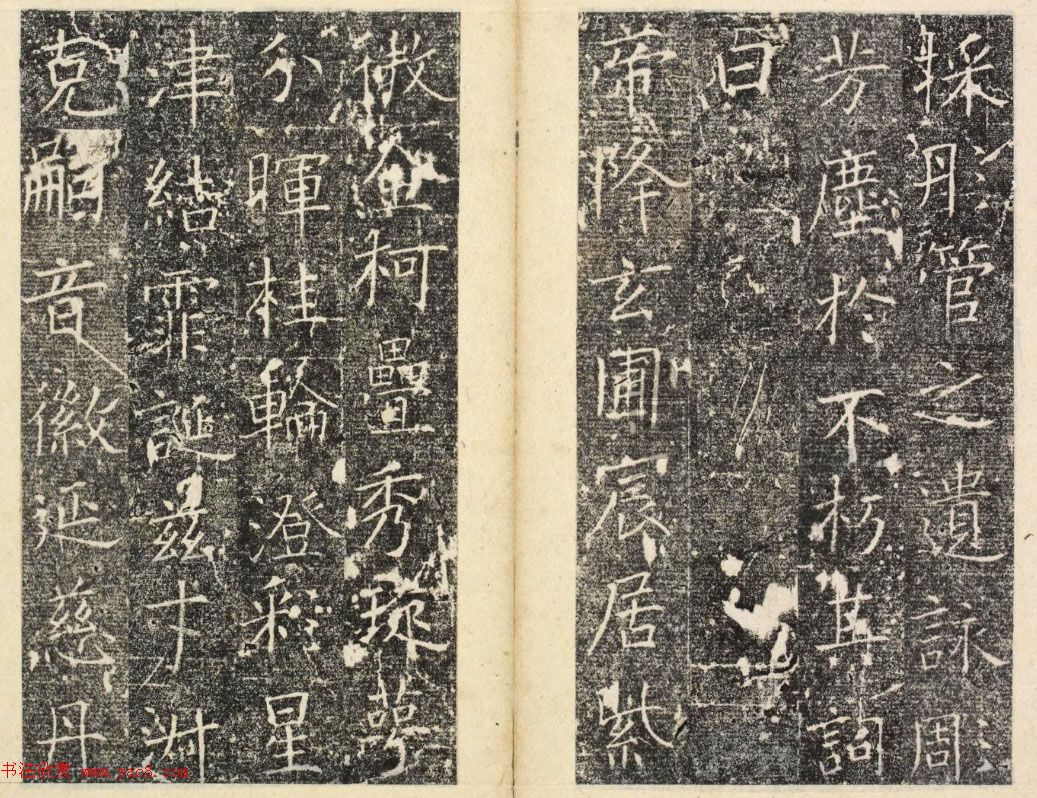 採丹管之遺詠周
芳塵於不朽其詞
曰
帝降玄圃宸居紫
微金柯疊秀瓊萼
分暉桂輪澄彩星
津結霏誕茲才淑
克嗣音徽延慈丹
书法欣赏 www.yac8.com